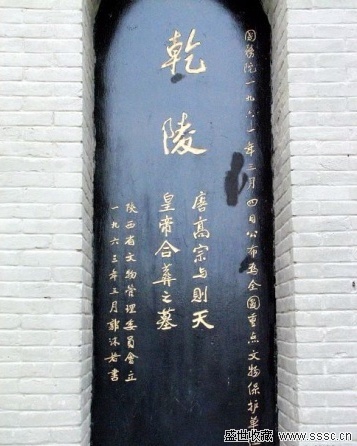 国务院一九六一年三月四日公布为全国重点文物保护单
乾陵
唐高宗与则天
皇帝合葬之墓
陕西省文物管理委员會立
一九六三年三月郭沫若書
盛世收藏 www.sssc.cn